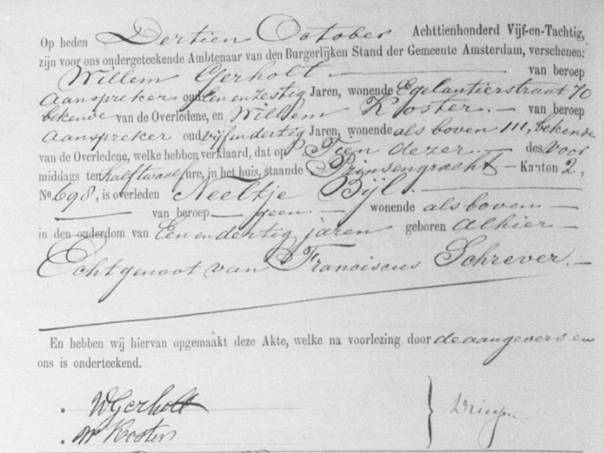 Op heden Dertien October Achttienhonderd Vijf-en-Tachtig,
zijn voor ons ondergeteekende Ambtenaar van den Burgerlijken Stand der Gemeente Amsterdam, verschenen:
Willem Gerholt van beroep
Aanspreker oud Een en zestig Jaren, wonende Egelantierstraat 70
bekende van de Overledene, en Willem Koster van beroep
Aanspreker oud vijfendertig Jaren, wonende als boven 111, bekende
van de Overledene, welke hebben verklaard, dat op Tien dezer des voor
middags ten half twaalf ure, in het huis, staande Prinsengracht Kanton 2,
No. 698, is overleden Neeltje Bijl
van beroep geen wonende als boven
in den ouderdom van Een en dertig jaren geboren Alhier
Echtgenoot van Franciscus Schrever.
En hebben wij hiervan opgemaakt deze Akte, welke na voorlezing door de aangevers en
ons is onderteekend.
WGerholt
W Koster